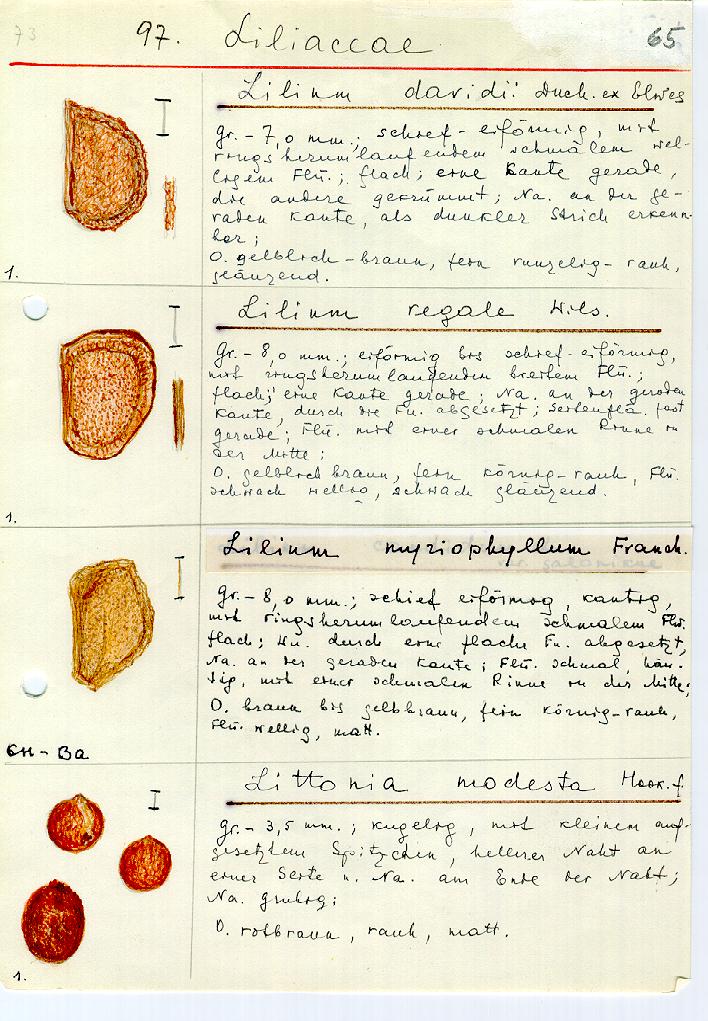 73 97. Liliaceae 65
Lilium davidi: Duch. ex Elwes
Gr. - 7,0 mm.; schief - eiförmig, mit
ringsherumlaufendem schmalem wel-
ligem Flü.; flach; eine Kante gerade,
die andere gekrümmt; Na. an der ge-
raden Kante, als dunkler Strich erkenn-
bar;
O. gelblich - braun, fein runzelig - rauh,
glänzend.
1.
Lilium regale Wils.
Gr. - 8,0 mm.; eiförmig bis schief - eiförmig,
mit ringsherumlaufenden breitem Flü.;
flach; eine Kante gerade; Na. an der geraden
Kante, durch die Fu. abgesetzt; Seitenflä. fast
gerade; Flü. mit einer schmalen Rinne in
der Mitte;
O. gelblich braun, fein körnig - rauh, Flü.
schwach wellig, schwach glänzend.
1.
Lilium myriophyllum Franch.
Gr. - 8,0 mm.; schief eiförmig, kantig,
mit ringsherumlaufendem schmalem Flü.
flach; durch eine flache Fu. abgesetzt,
Na. an der geraden Kante; Flü. schmal, häu-
tig, mit einer schmalen Rinne in der Mitte;
O. braun bis gelbbraun, fein körnig - rauh,
Flü. wellig, matt.
CH - Ba
Littonia modesta Hook. f.
Gr. - 3,5 mm.; kugelig, mit kleinem auf-
gesetztem Spitzchen, hellerer Naht an
einer Seite u. Na. am Ende der Naht;
Na. grubig;
O. rotbraun, rauh, matt.
1.